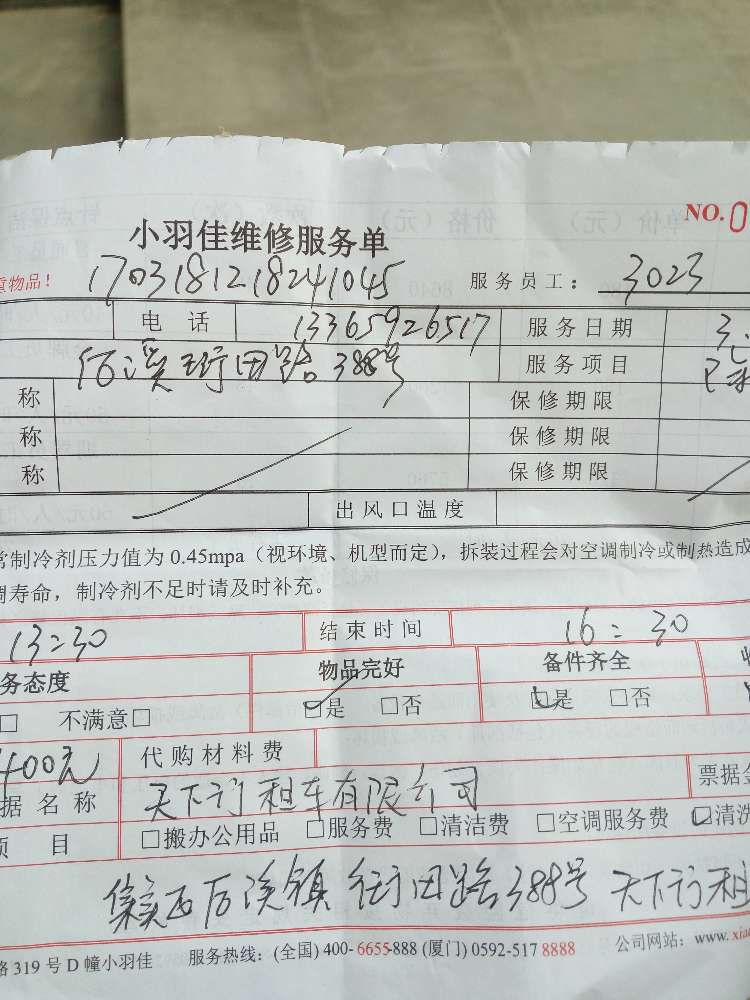 NO.0
小羽佳维修服务单
重物品! 1703181218241045 服务员工: 3023
电话 13365926517 服务日期
后溪珩田路388号 服务项目
称 保修期限
称 保修期限
称 保修期限
出风口温度
常制冷剂压力值为 0.45mpa(视环境、机型而定),拆装过程会对空调制冷或制热造成
调寿命,制冷剂不足时请及时补充。
13:30 结束时间 16:30
务态度 物品完好 备件齐全
□ 不满意□ ☑是 □否 ☑是 □否
400元 代购材料费
据名称 天下行租车有限公司 票据金
项目 □搬办公用品 □服务费 □清洁费 □空调服务费 ☑清洗
集美区后溪镇珩田路388号 天下行租
路 319 号 D 幢小羽佳 服务热线:(全国) 400-6655-888 (厦门) 0592-517 8888 公司网站: www.xia